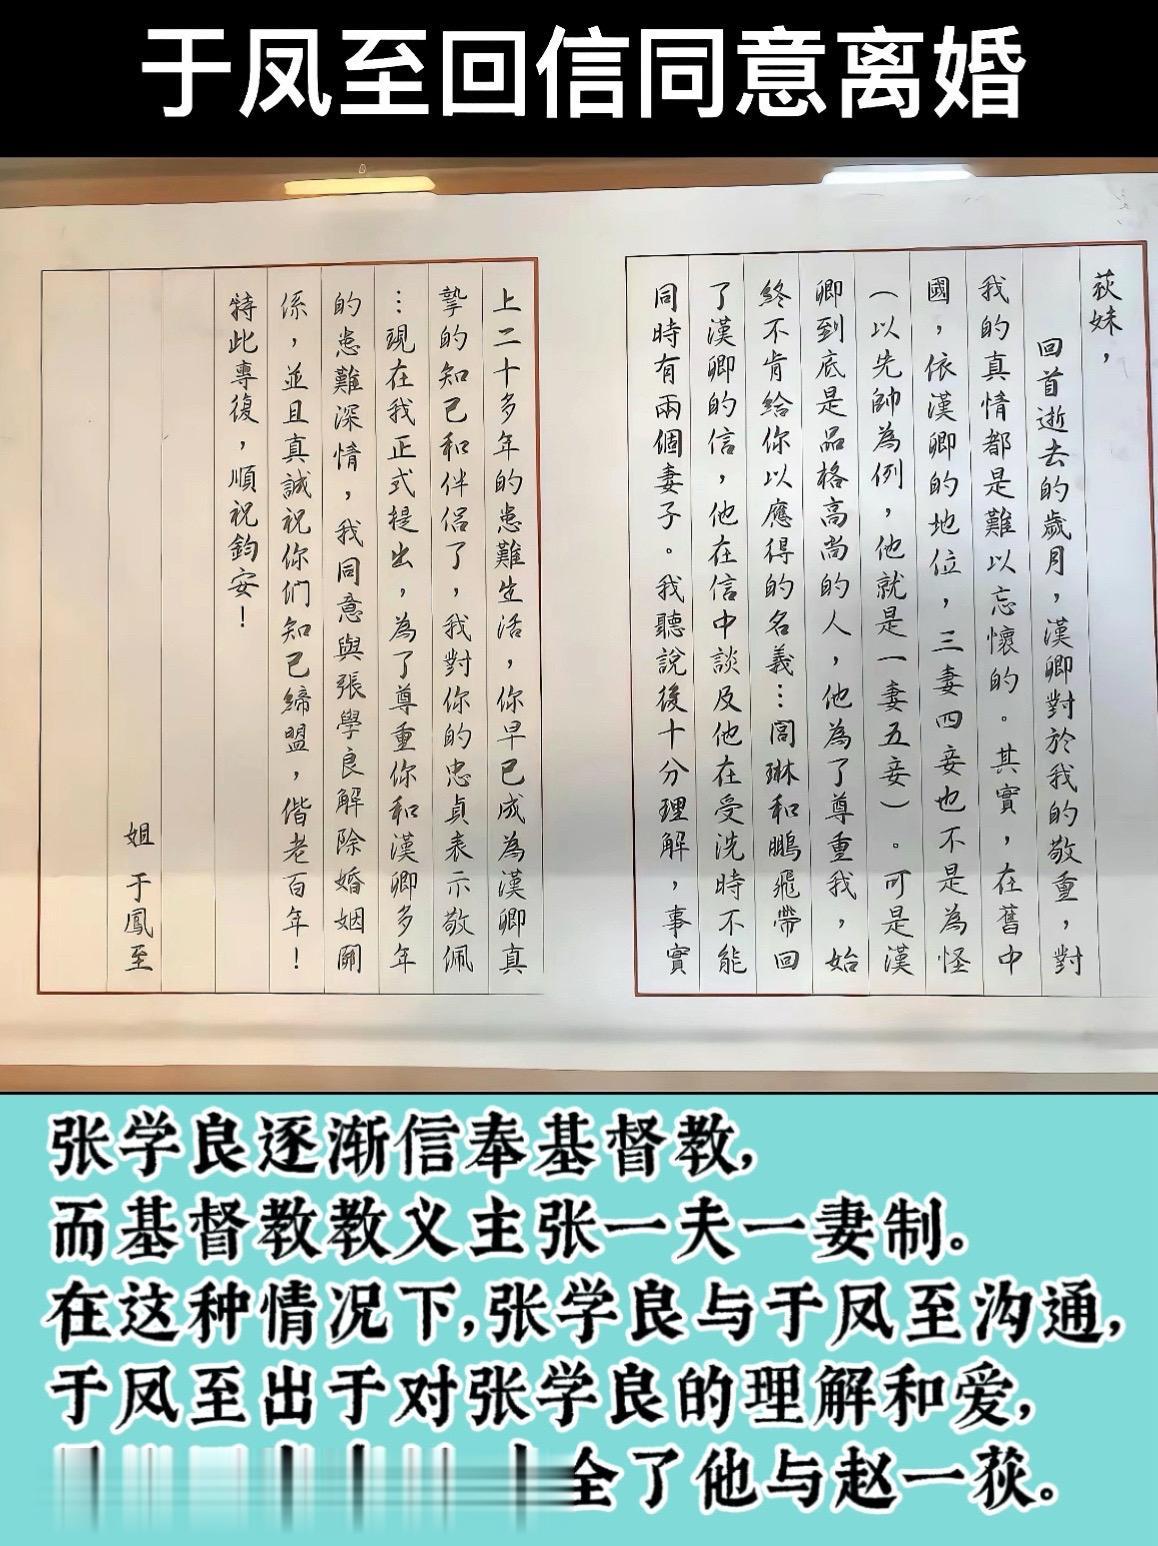 于凤至回信同意离婚
荻妹，
回首逝去的歲月，漢卿對於我的敬重，對
我的真情都是難以忘懷的。其實，在舊中
國，依漢卿的地位，三妻四妾也不是為怪
（以先帥為例，他就是一妻五妾）。可是漢
卿到底是品格高尚的人，他為了尊重我，始
終不肯給你以應得的名義…閭琳和鵬飛帶回
了漢卿的信，他在信中談及他在受洗時不能
同時有兩個妻子。我聽說後十分理解，事實
上二十多年的患難生活，你早已成為漢卿真
摯的知己和伴侶了，我對你的忠貞表示敬佩
…現在我正式提出，為了尊重你和漢卿多年
的患難深情，我同意與張學良解除婚姻關
係，並且真誠祝你們知己締盟，偕老百年！
特此專復，順祝鈞安！
姐 于鳳至
张学良逐渐信奉基督教，
而基督教教义主张一夫一妻制。
在这种情况下，张学良与于凤至沟通，
于凤至出于对张学良的理解和爱，
全了他与赵一荻。